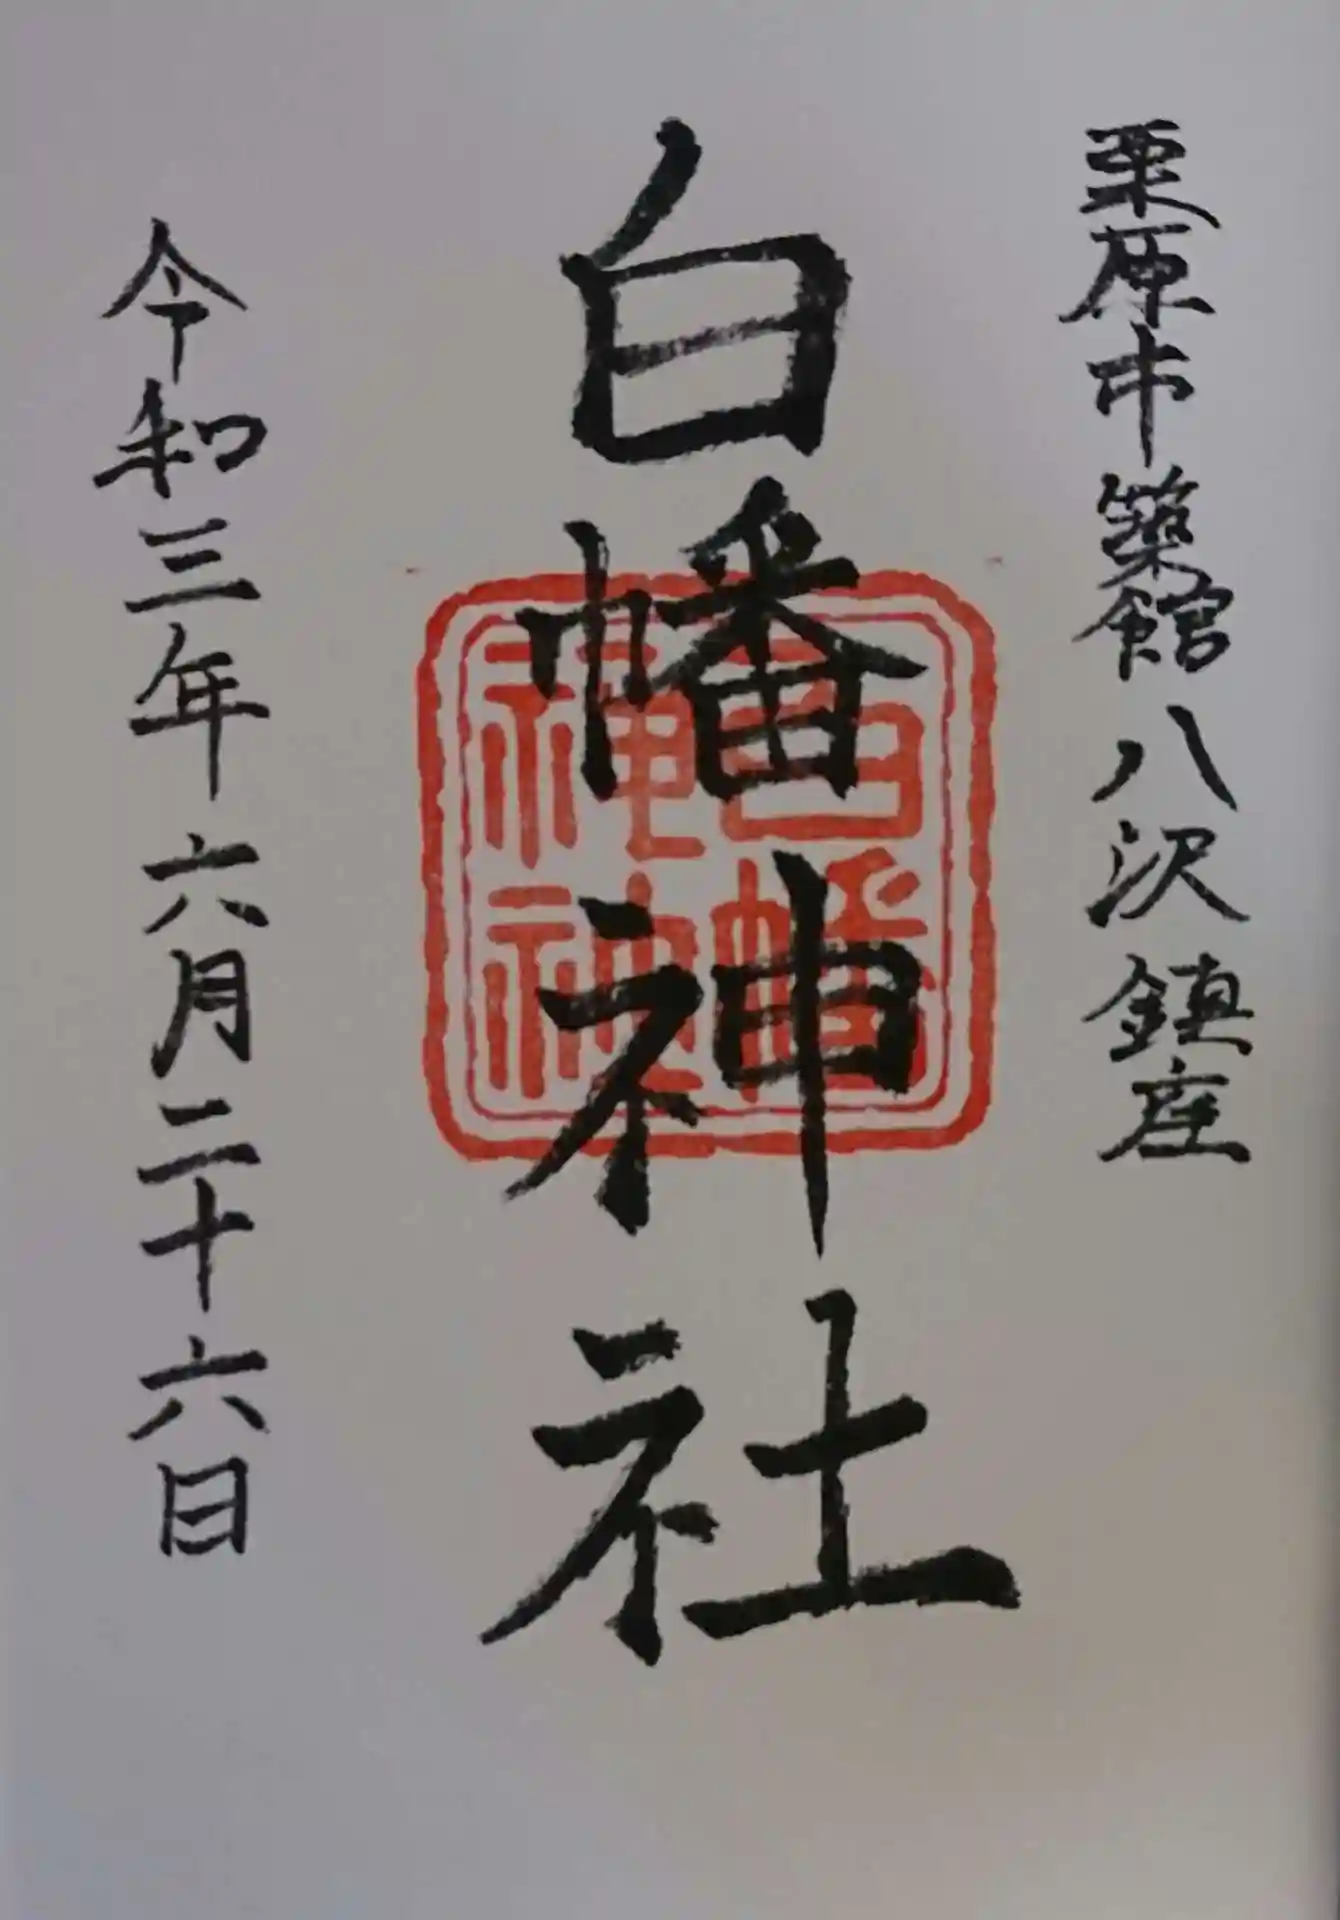 栗原市築館八沢鎮座
白幡神社
白幡
神社
令和三年六月二十六日